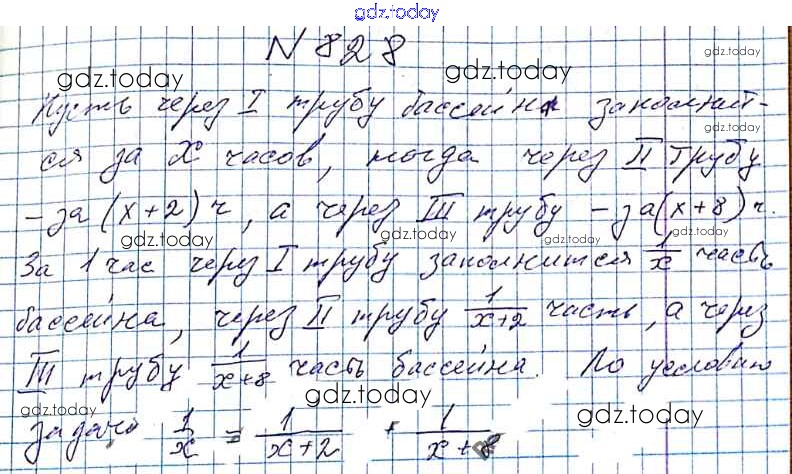 gdz.today
N 828
gdz.today
gdz.today
gdz.today
Пусть через I трубу бассейн заполнит-
gdz.today
ся за x часов, тогда через II трубу
gdz.today
gdz.today
- за (x+2) ч, а через III трубу - за (x+8) ч.
gdz.today
gdz.today
gdz.today
За 1 час через I трубу заполнится 1/x часть
бассейна, через II трубу 1/(x+2) часть, а через
gdz.today
gdz.today
III трубу 1/(x+8) часть бассейна. По условию
gdz.today
gdz.today
gdz.today
задачи 1/x = 1/(x+2) + 1/(x+8)